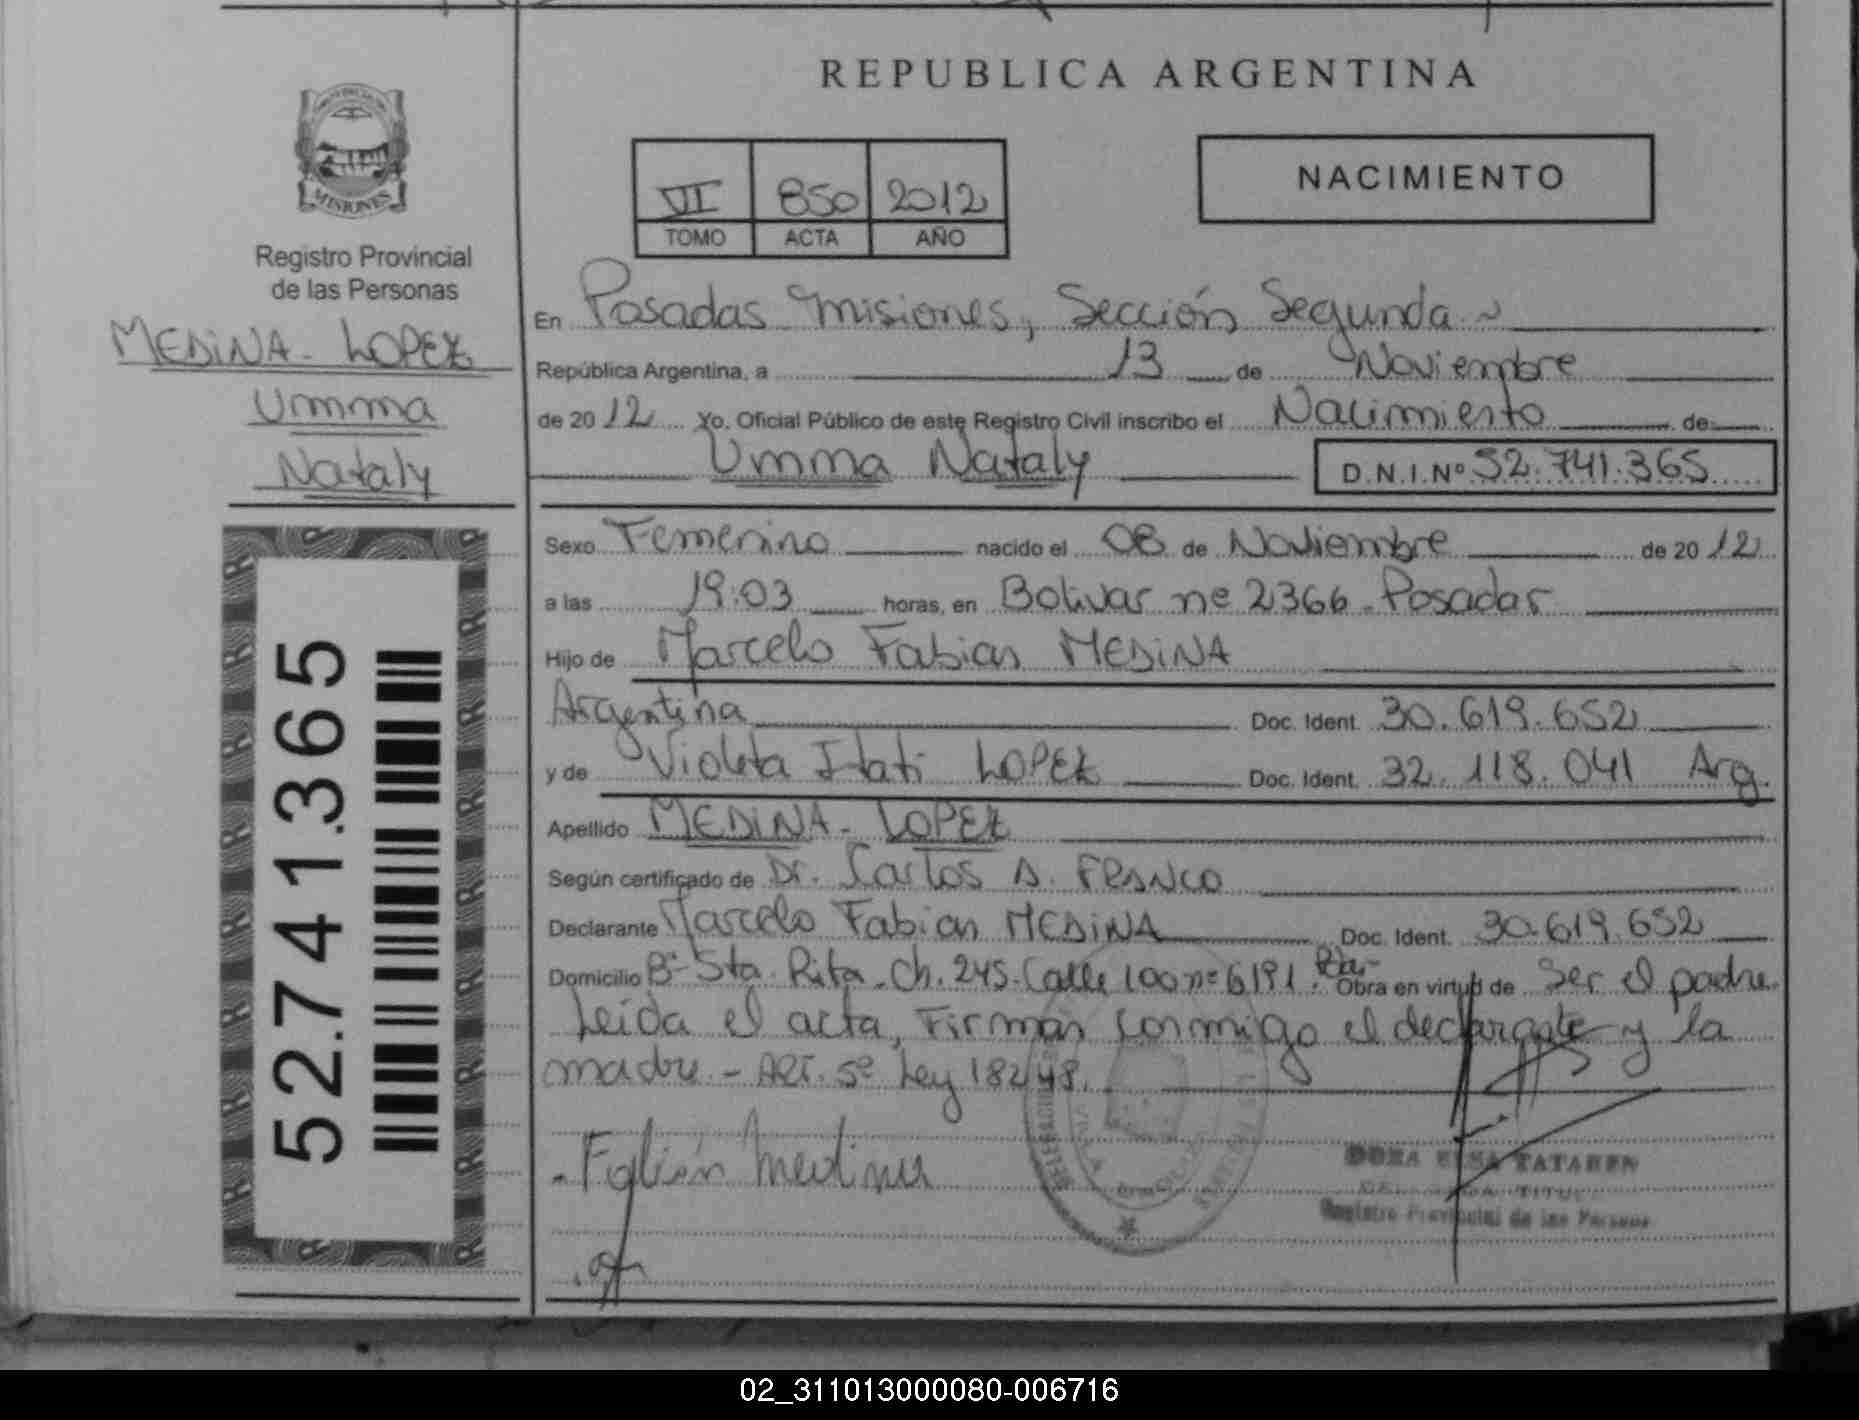 REPUBLICA ARGENTINA
MISIONES
Registro Provincial
de las Personas
MEDINA - LOPEZ
Umma
Nataly
52.741.365
VI 850 2012
TOMO ACTA AÑO
NACIMIENTO
En Posadas Misiones, Sección Segunda
República Argentina, a 13 de Noviembre
de 2012 Yo, Oficial Público de este Registro Civil inscribo el Nacimiento de
Umma Nataly D.N.I.Nº 52.741.365
Sexo Femenino nacido el 08 de Noviembre de 2012
a las 19:03 horas, en Bolivar nº 2366 - Posadas
Hijo de Marcelo Fabian MEDINA
Argentina Doc. Ident. 30.619.652
y de Violeta Itati LOPEZ Doc. Ident. 32.118.041 Arg.
Apellido MEDINA - LOPEZ
Según certificado de Dr. Carlos A. FRANCO
Declarante Marcelo Fabian MEDINA Doc. Ident. 30.619.652
Domicilio Bº Sta. Rita - Ch. 245 - Calle 100 nº 6191. Obra en virtud de Ser el padre.
Leida el acta, Firman conmigo el declarante y la
madre. - ART. 5º Ley 18248.
Fabián Medina
DORA ELSA TATAREN
Registro Provincial de las Personas
02_311013000080-006716